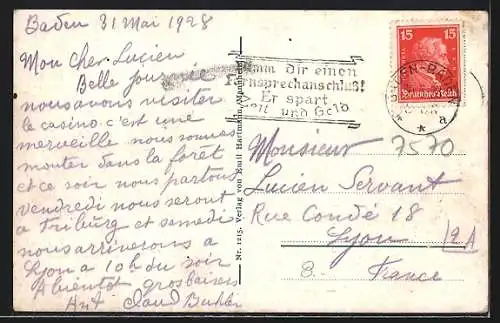 Baden 31 Mai 1928
Mon cher Lucien
Belle journée
nous avons visiter
le casino c'est une
merveille nous sommes
monter dans la forêt
et ce soir nous partons
vendredi nous seront
a Friburg et samedi
nous arriverons a
Lyon a 10h du soir
A bientot gros baisers
Ant Claud Buhler
Nr. 1215. Verlag von Emil Hartmann, Mannheim
Nimm dir einen
Fernsprechanschluß!
Er spart
Zeit und Geld
15 15
Deutsches Reich
BADEN-BADEN
* a
7570
Monsieur
Lucien Servant
Rue Condé 18
Lyon
12A
France